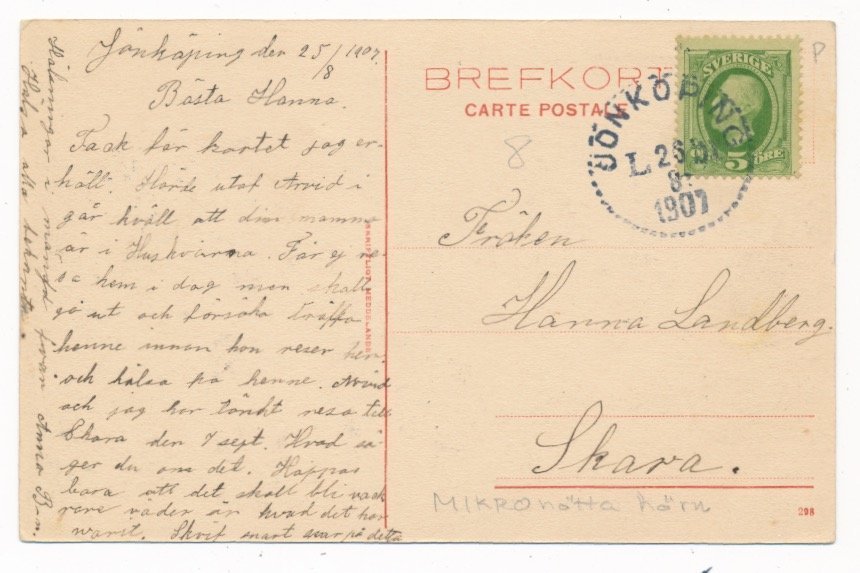 Jönköping den 25/8 1907.
Bästa Hanna.
Tack för kortet jag er-
höll. Hörde utaf Arvid i
går kväll att din mamma
är i Huskvarna. Får ej re-
sa hem i dag men skall
gå ut och försöka träffa
henne innan hon reser hem
och hälsa på henne. Arvid
och jag har tänkt resa till
Skara den 7 sept. Hvad sä-
ger du om det. Hoppas
bara att det skall bli vack
rare väder än hvad det har
warit. Skrif snart svar på detta
Hälsningar i mängd från Anna B-n.
Hälsa alla bekanta.
ENSKILDT MEDDELANDE
BREFKORT
CARTE POSTALE
SVERIGE
5 ÖRE
JÖNKÖPING
L. 26
8
1907
P
8
Fröken
Hanna Landberg.
Skara.
MIKRO nötta hörn
298